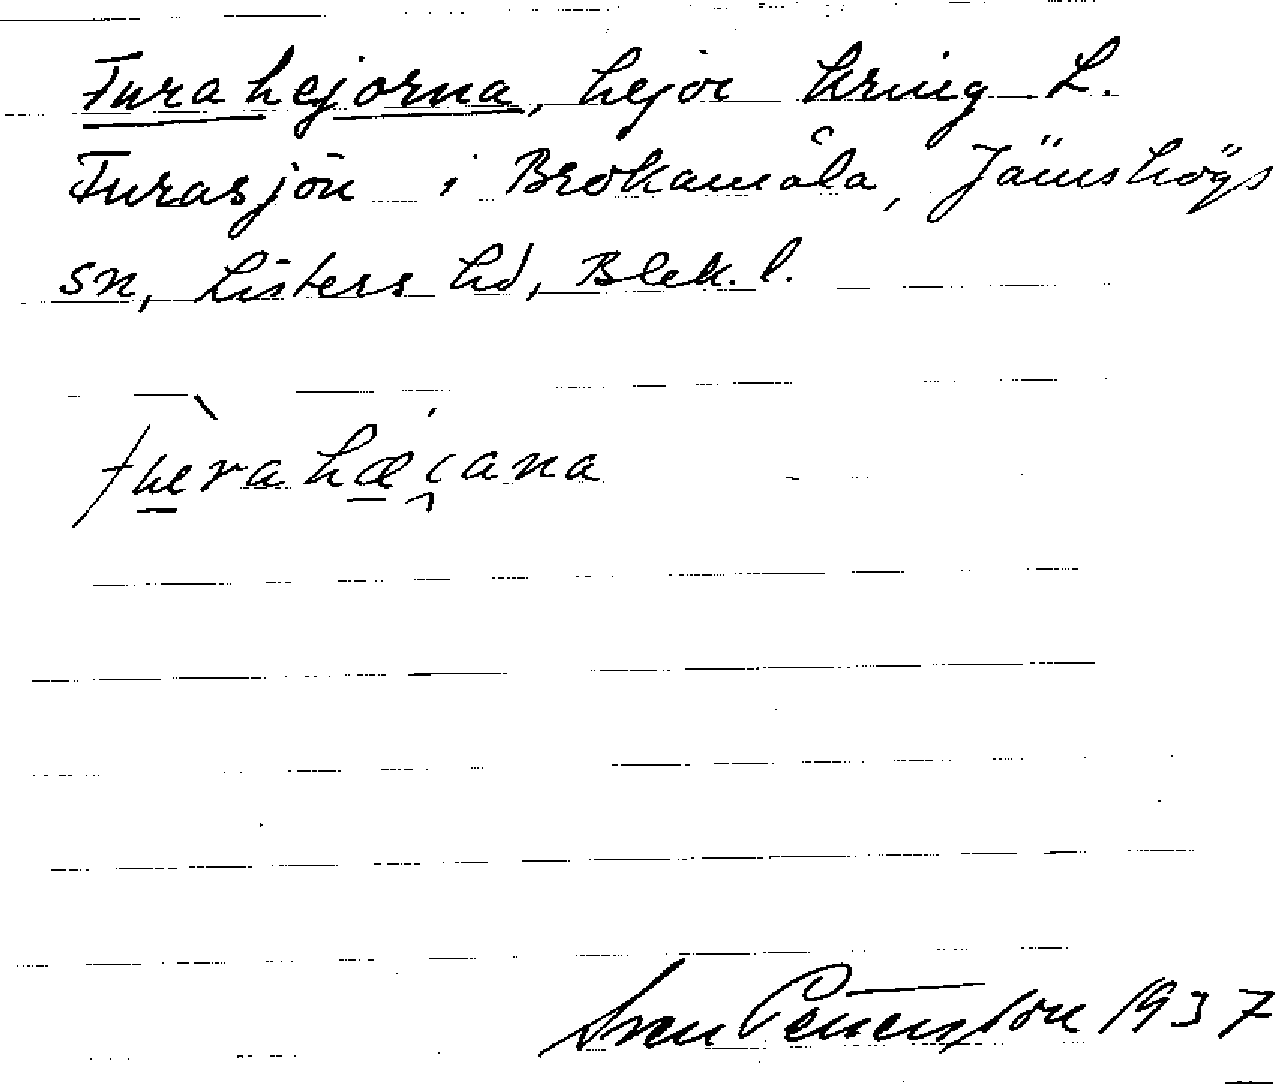 Furahejorna, hejor kring L.
Furasjön i Brokamåla, Jämshögs
sn, Listers hd, Blek. l.
fùrahǽi̯ana
Sven Pettersson 1937